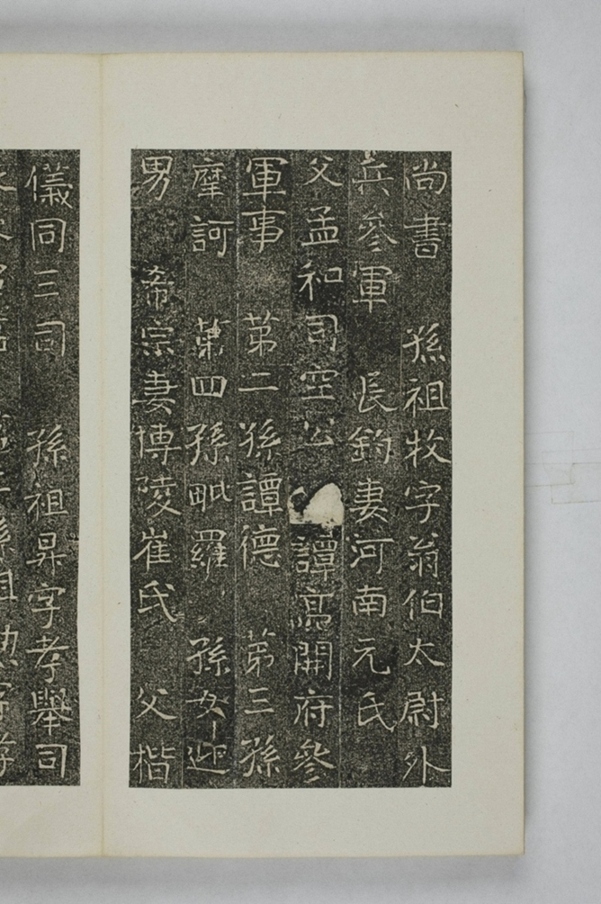 尚書　孫祖牧字翁伯太尉外
兵參軍　長鈞妻河南元氏
父孟和司空公　譚高開府參
軍事　第二孫譚德　第三孫
摩訶　第四孫毗羅　孫女迎
男　帝宗妻博陵崔氏　父楷
儀同三司　孫祖昇字孝舉司